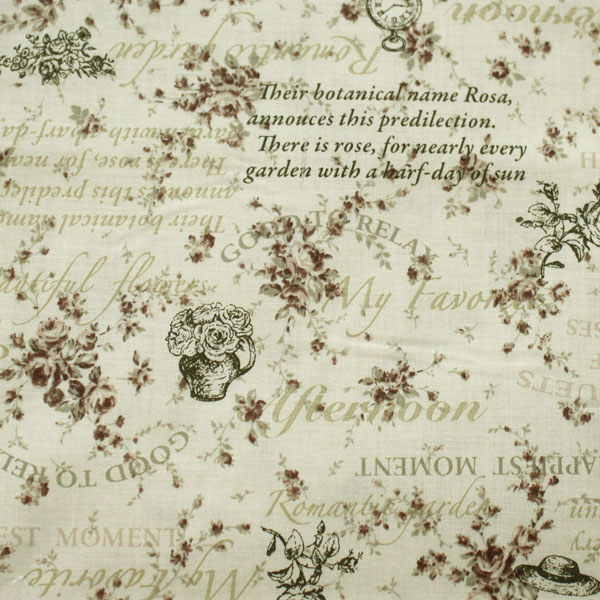 ernoon
Romantic garden
Their botanical name Rosa,
annouces this predilection.
There is rose, for nearly every
garden with a harf-day of sun
garden with a harf-da
There is rose, for near
annouces this predilec
Their botanical name
GOOD TO RELAX
autiful flowers
My Favori
UETS
Afternoon
GOOD TO RELA
APPIEST MOMENT
Romantic garden
EST MOMENT
My Favorite